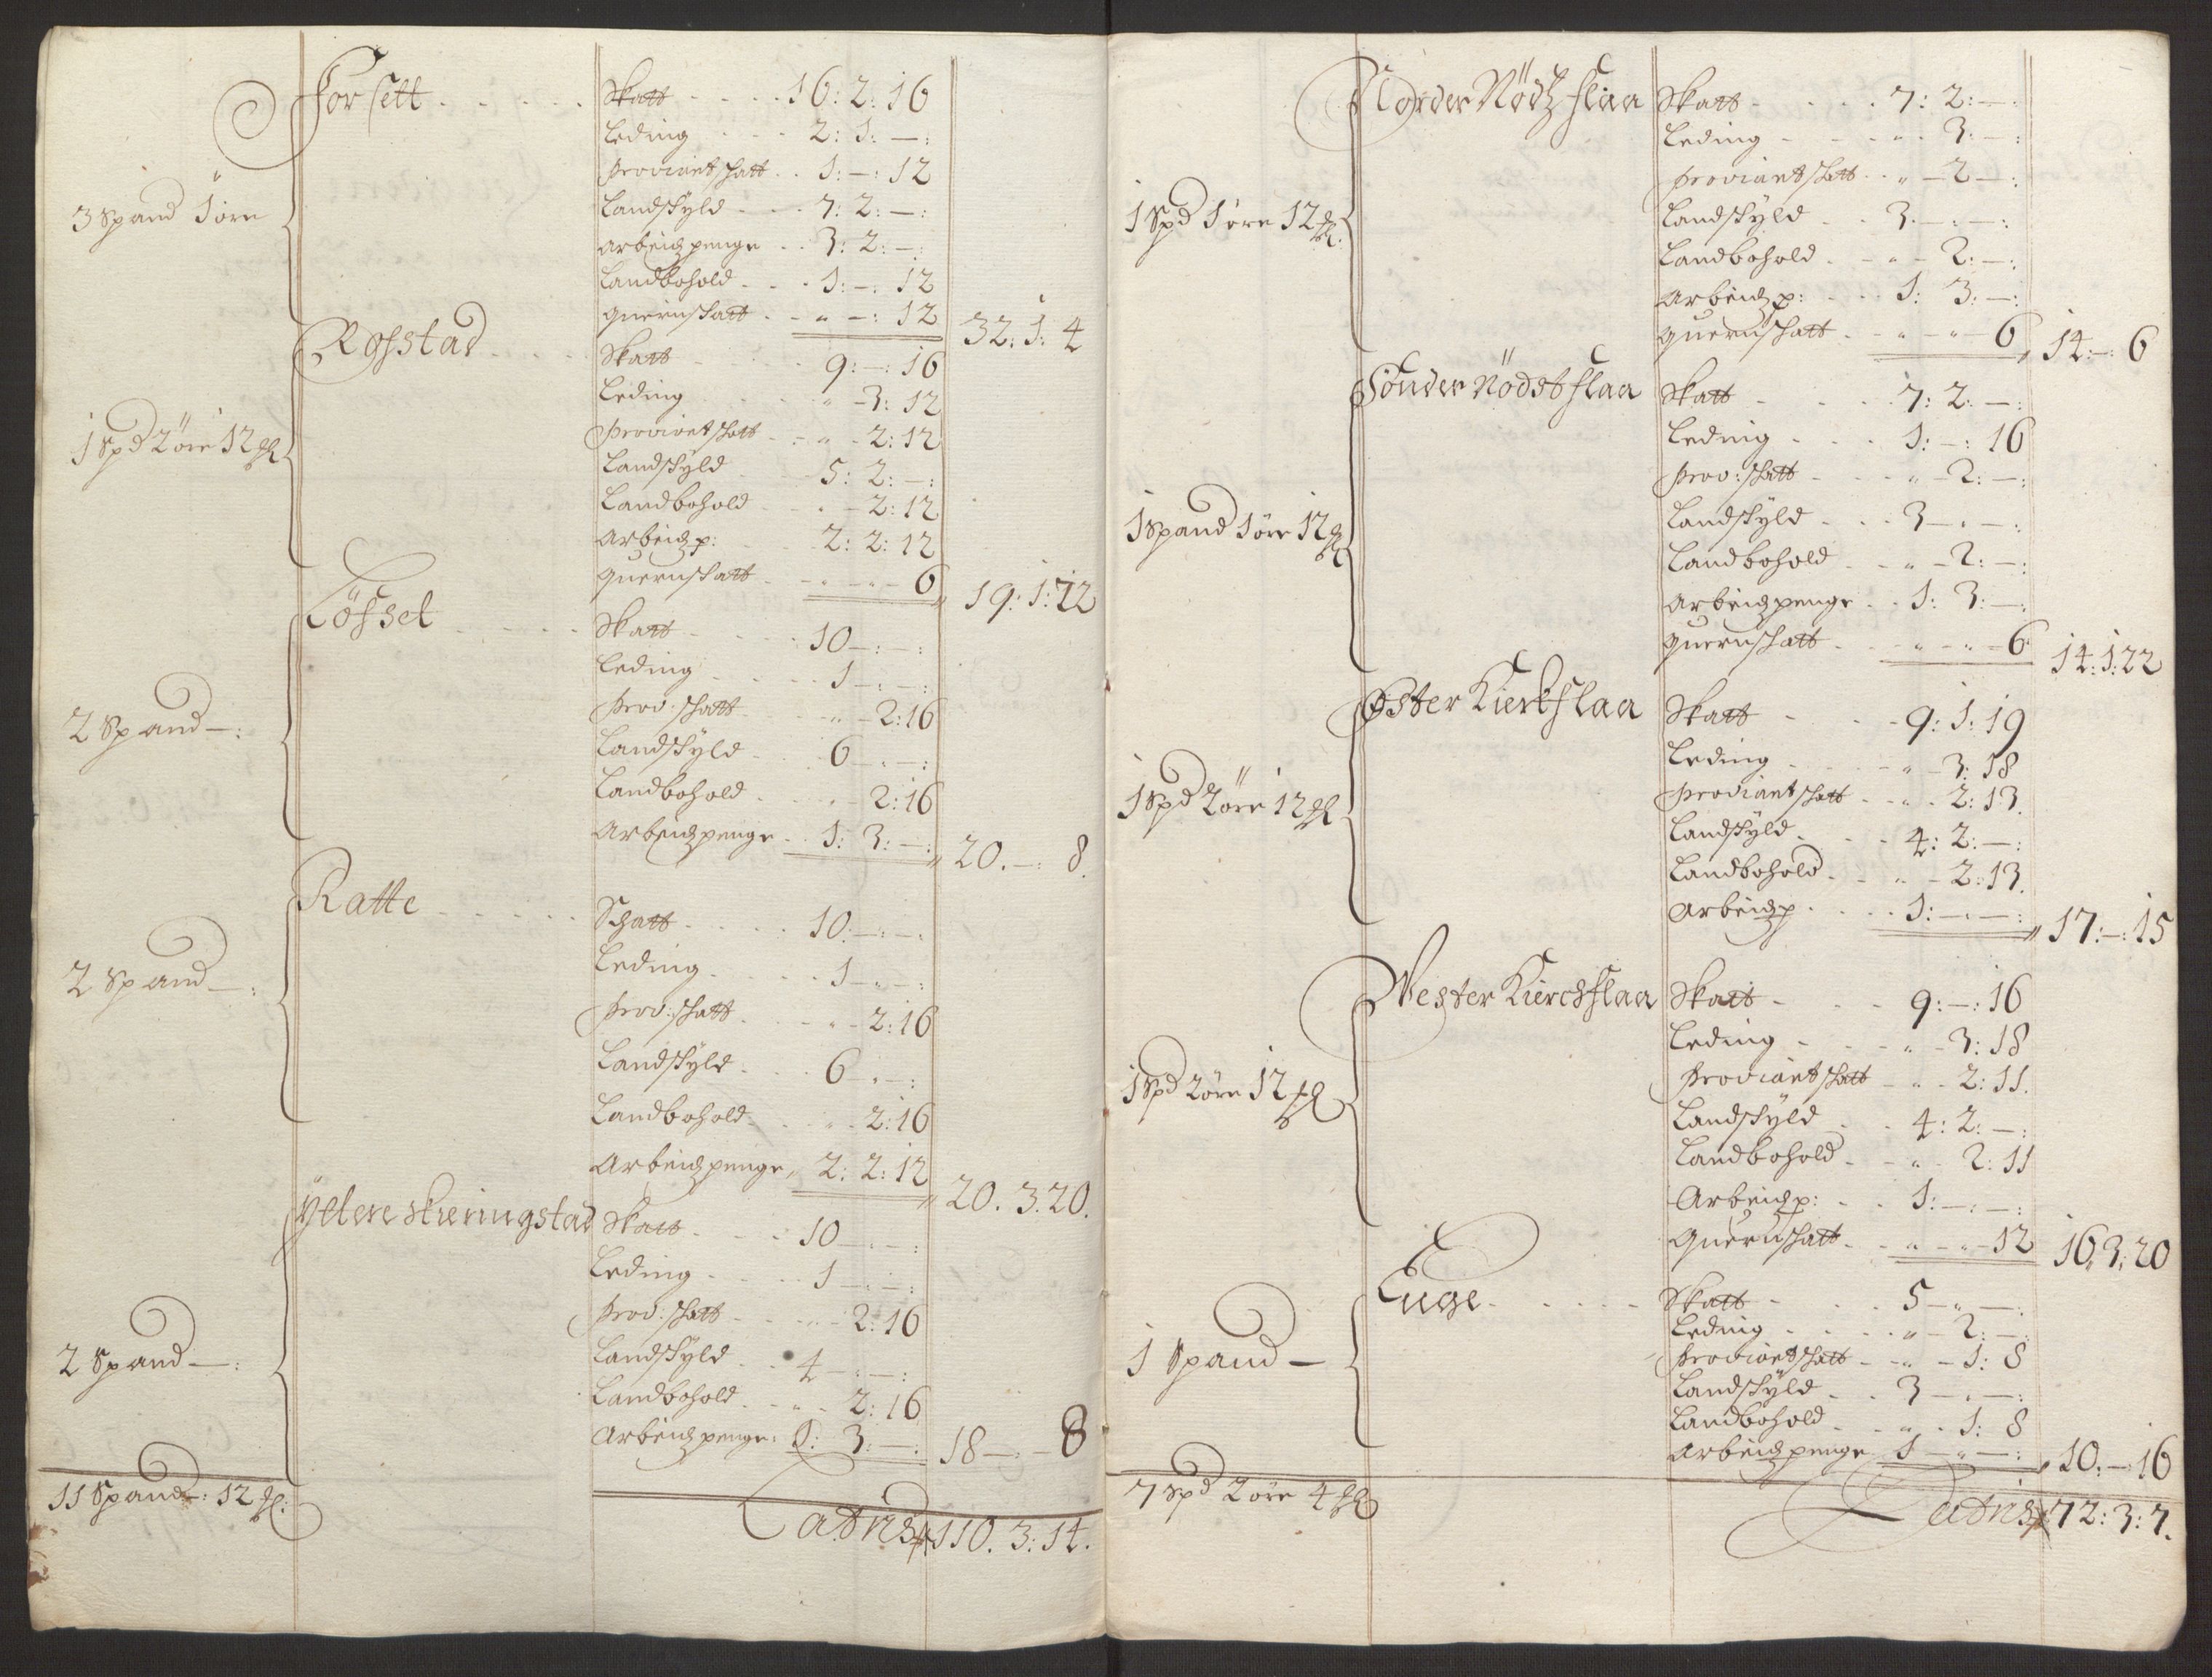 Forsett - - - - - Skatt - - - - 16: 2: 16
Leding - - - - 2: 1: —:
Proviantskatt - - 1: —: 12
3 Spand 1 öre Landskyld - - - 7: 2: —:
Arbeidzpenge - - 3: 2: —:
Landbohold - - - 1: —: 12
Quernskatt - - " —: 12 32: 1: 4
Rosstad - - - - Skatt - - - - 9: —: 16
Leding - - - " — 3: 12
1 Spd 2 öre 12 Proviantskatt - - " - 2: 12
Landskyld - - - 5: 2: —:
Landbohold - - - - 2: 12
Arbeidzp: - - - 2: 2: 12
Quernskatt - - " - " - 6 19: 1: 22
Lösset - - - - Skatt - - - - 10 —: —:
Leding - - - - 1 —: —:
2 Spand —: Prov: skatt - - " - 2: 16
Landskyld - - - 6 — . —:
Landbohold - - - " - 2: 16
Arbeidzpenge - - 1: 3: —: 20. —: 8.
Ratte - - - - - Schatt - - - - 10: —: —:
Leding - - - - 1 — " —:
2 Spand —: Prov: skatt - - - " - 2: 16
Landskyld - - - 6 — . —:
Landbohold - - - " - 2: 16
Arbeidzpenge, 2: 2: 12 20. 3. 20.
Yttere skieringstad Skatt - - - 10 — . —:
Leding - - - - 1 — . —:
Prov: skatt - - - - 2: 16
2 Spand —: Landskyld - - 4 — . —:
Landbohold - - " - 2: 16
Arbeidzpenge: 1: 3: —: 18 —: — 8
11 Spand —: 12
Latris 110. 3: 14.
Norder Nödtzslaa Skatt - - - - 7: 2: —:
Leding - - - " - 3: —:
Proviantskatt - - " — 2 —:
1 Spd 1 öre 12 Landskyld - - 3. —: —:
Landbohold - - " - 2: —:
Arbeidzp: - - - 1: 3: —:
Quernskatt - - " - " — 6 14: —: 6
Sönder Nödstslaa Skatt - - - - 7: 2: —:
Leding - - - 1: —: 16
Prov: skatt - - - " - 2: —:
1 Spand 1 öre 12 Landskyld - - - 3 — . —:
Landbohold - - " - 2: —:
Arbeidzpenge - - 1: 3: —:
Quernskatt - - " - " - 6 14: 1: 22
Öster Kierkslaa Skatt - - - 9: 1: 19
Leding - - - - " — 3: 18
1 Spd 2 öre 12 Proviantskatt - - " - 2: 13.
Landskyld - - - 4: 2: —:
Landbohold - - " - 2: 13.
Arbeidzp - - - - 1: —. —: 17: —: 15
Wester Kierchslaa Skatt - - - 9: —: 16
Leding - - - " - 3: 18
1 Spd 2 öre 12 Proviantskatt - " - 2: 11.
Landskyld - - 4: 2: —:
Landbohold - - " - 2: 11
Arbeidzp: - - 1: —: —:
Quernskatt - - " - " - 12 16: 3: 20
Euge - - - - - Skatt - - - - 5 — " —:
Leding - - - - " — 2: —:
1 Spand — Proviantskatt - - " - 1: 8
Landskyld - - 3 — . —:
Landbohold - - " - 1: 8
Arbeidzpenge 1 — " —: 10: —: 16
7 Spd 2 öre 4
Latris 72: 3: 7.